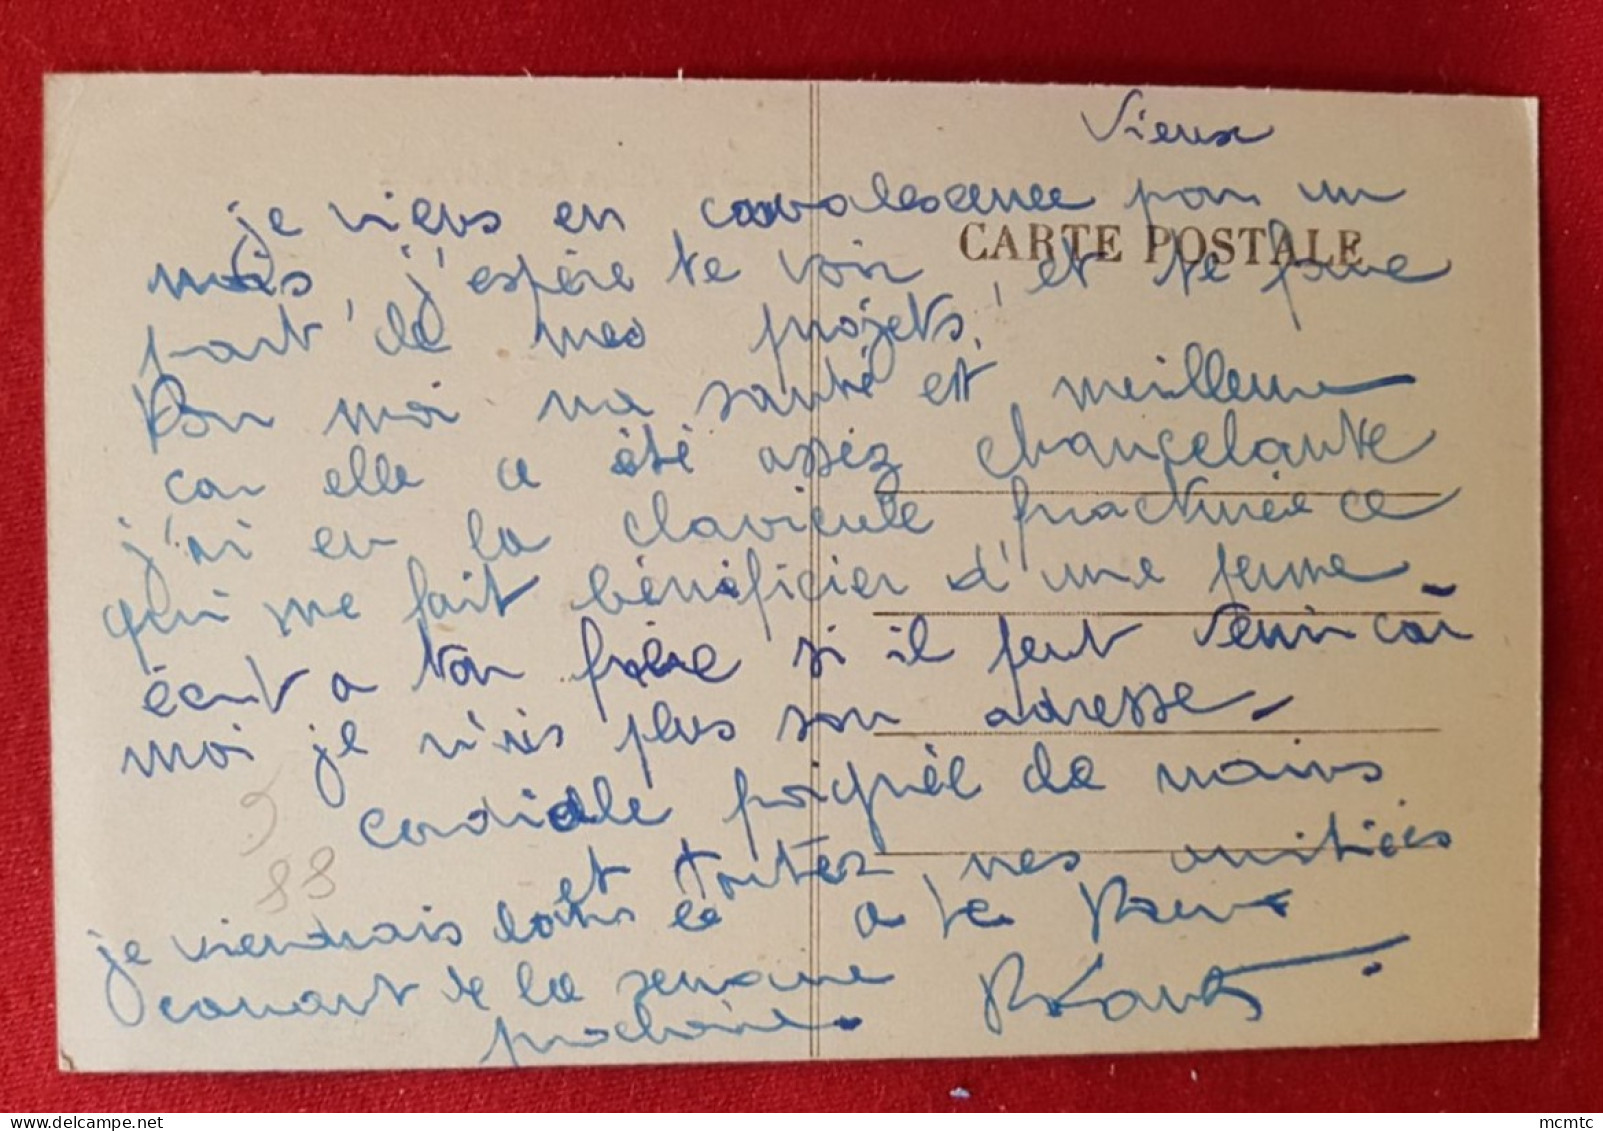 Vieux
je viens en convalescence pour un
CARTE POSTALE
mois, j'espère te voir, et te faire
part de mes projets.
Bon moi ma santé est meilleure
car elle a été assez chançelante
j'ai eu la clavicule fracturée ce
qui me fait bénéficier d'une perme
écrit a ton frère si il peut venir car
moi je n'ais plus son adresse.
cordiale poignèe de mains
et toutes mes amitiées
je viendrais dans le a te
courant de la semaine
prochaine.
88
mcmtc